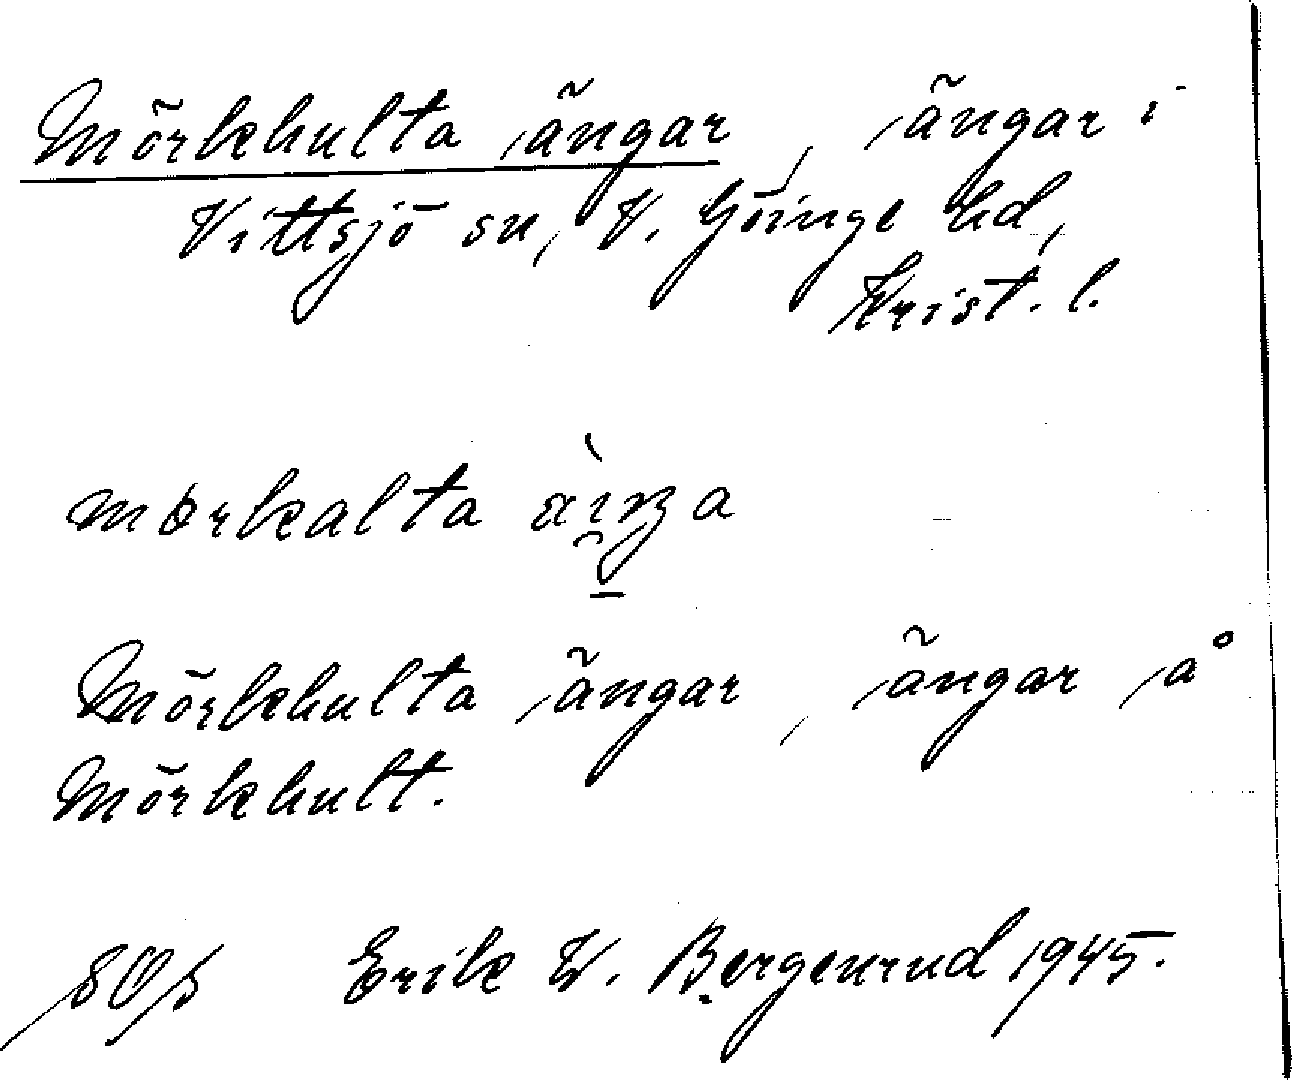 Mörkhulta ängar, ängar i
Vittsjö sn, V. Göinge hd,
Krist. l.
Mörkhulta ängar, ängar å
Mörkhult.
Erik W. Bergenrud 1945.